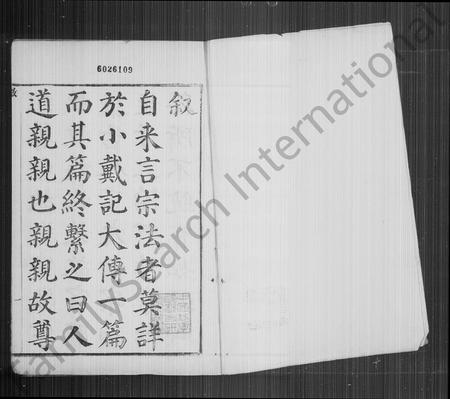 6026109
叙
自来言宗法者莫詳
於小戴記大傳一篇
而其篇終繫之曰人
道親親也親親故尊
FamilySearch International